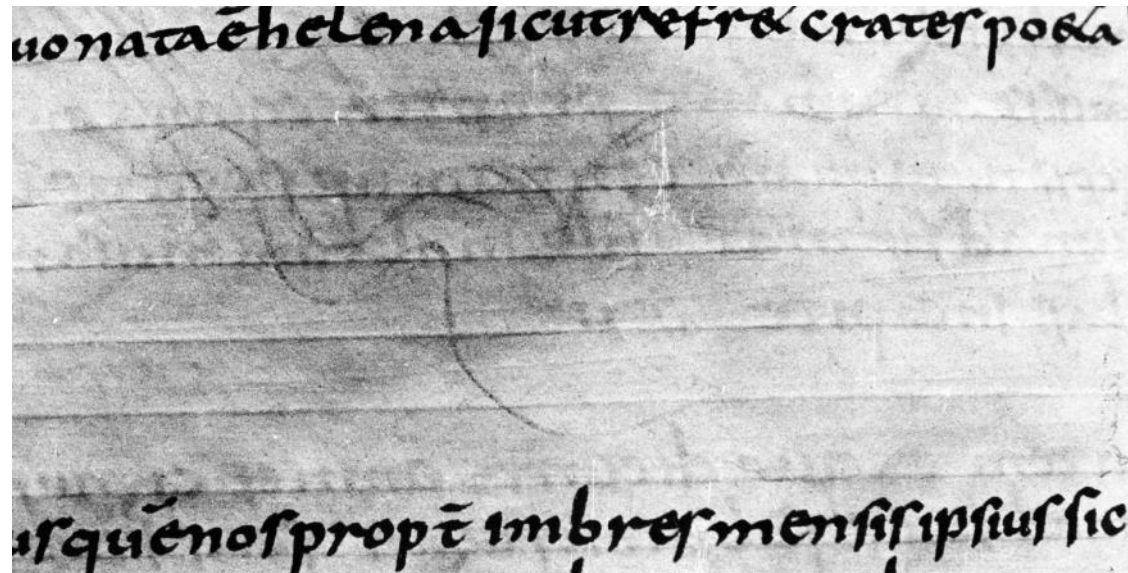 uo nata ē helena sicut refr& crates po&a
usquēnos propt̄ imbres mensis ipsius sic